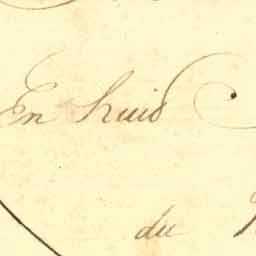 En huid
du